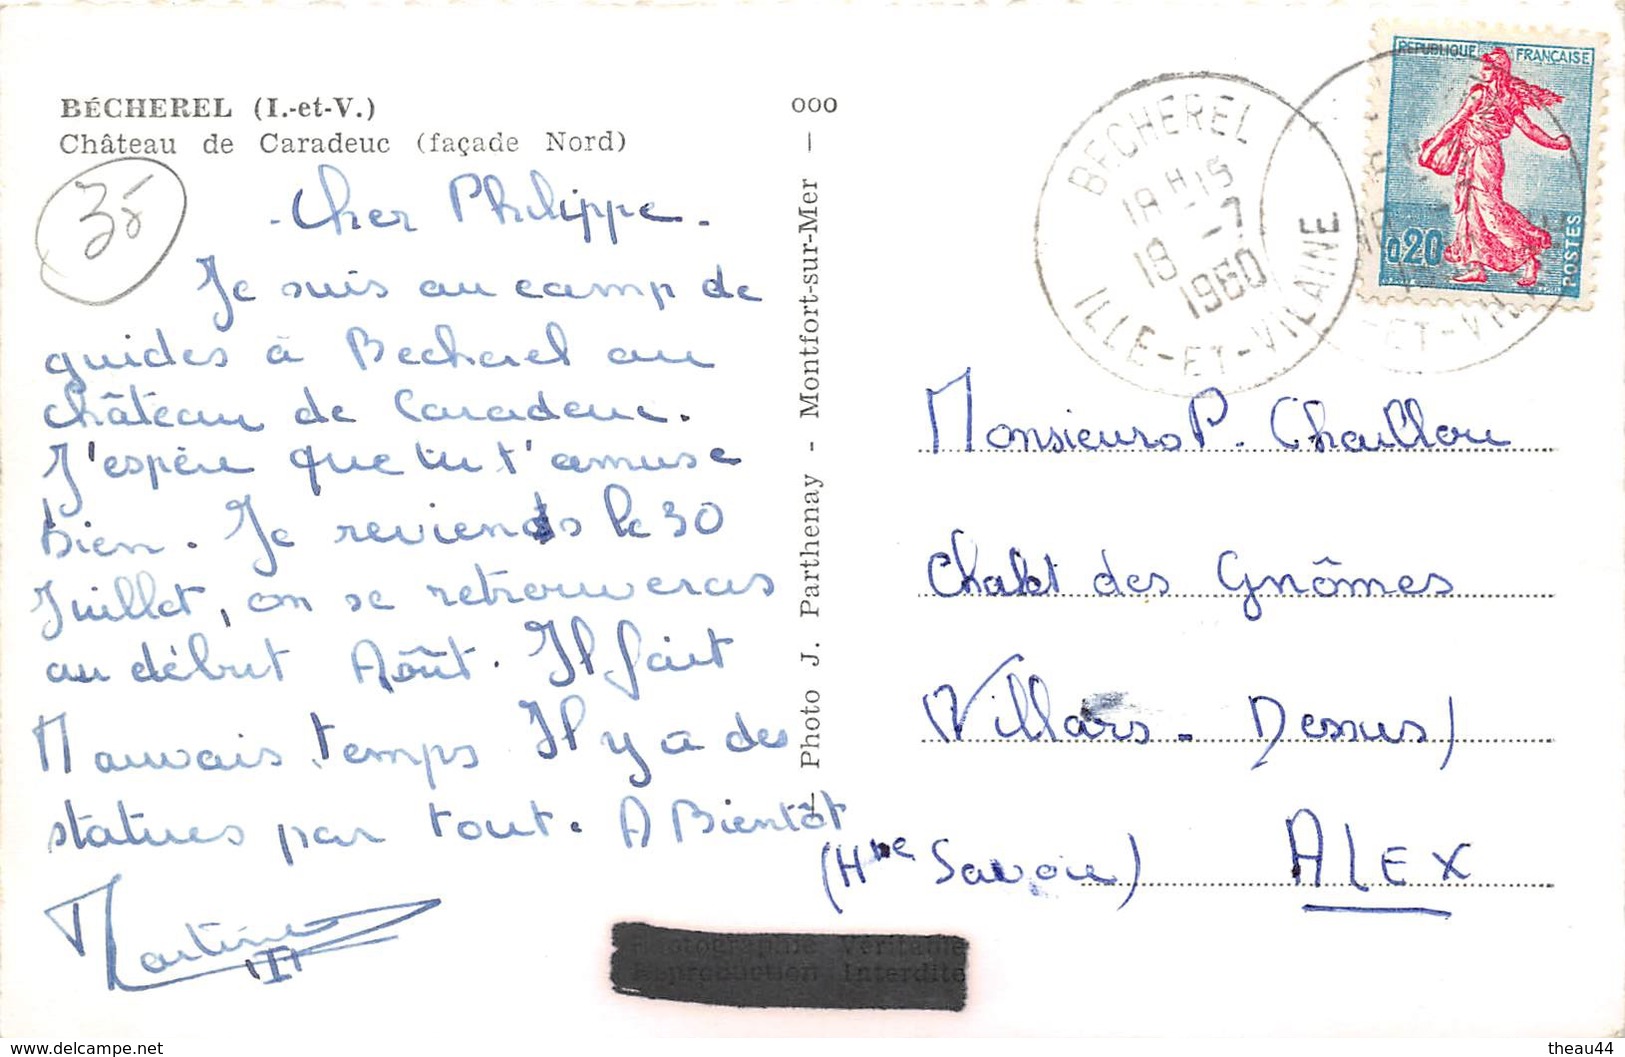 BÉCHEREL (I.-et-V.)
Château de Caradeuc (façade Nord)
35
Cher Philippe.
Je suis au camp de
guides à Becherel au
château de Caradeuc.
J'espère que tu t'amuse
bien. Je reviens le 30
Juillet, on se retrouveras
au début Août. Il fait
Mauvais temps Il y a des
statues par tout. A Bientôt
Martine
ooo
— Photo J. Parthenay - Montfort-sur-Mer —
BECHEREL
18 H 15
18 -7
1960
ILLE-ET-VILAINE
REPUBLIQUE FRANÇAISE
0,20
POSTES
Monsieur P. Chaillou
Chalet des Gnômes
Villars-Dessus
(Hne Savoie) ALEX
Photographie Véritable
Reproduction Interdite
www.delcampe.net
theau44